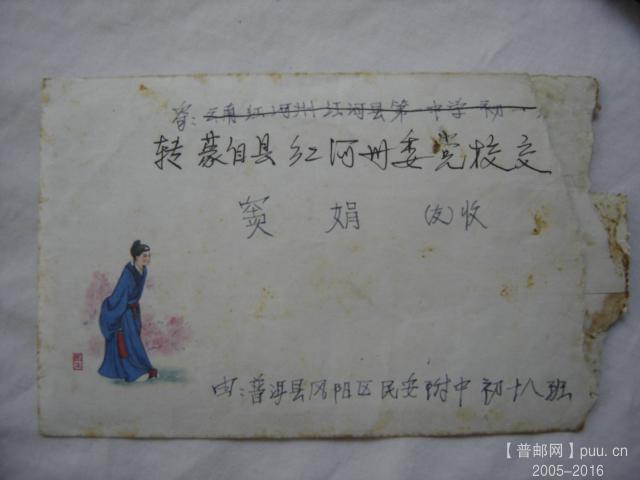 寄:云南红河州红河县第一中学初一
转蒙自县红河州委党校交
窦娟(友)收
由:普洱县凤阳区民安附中初十八班
【普邮网】puu.cn
2005-2016